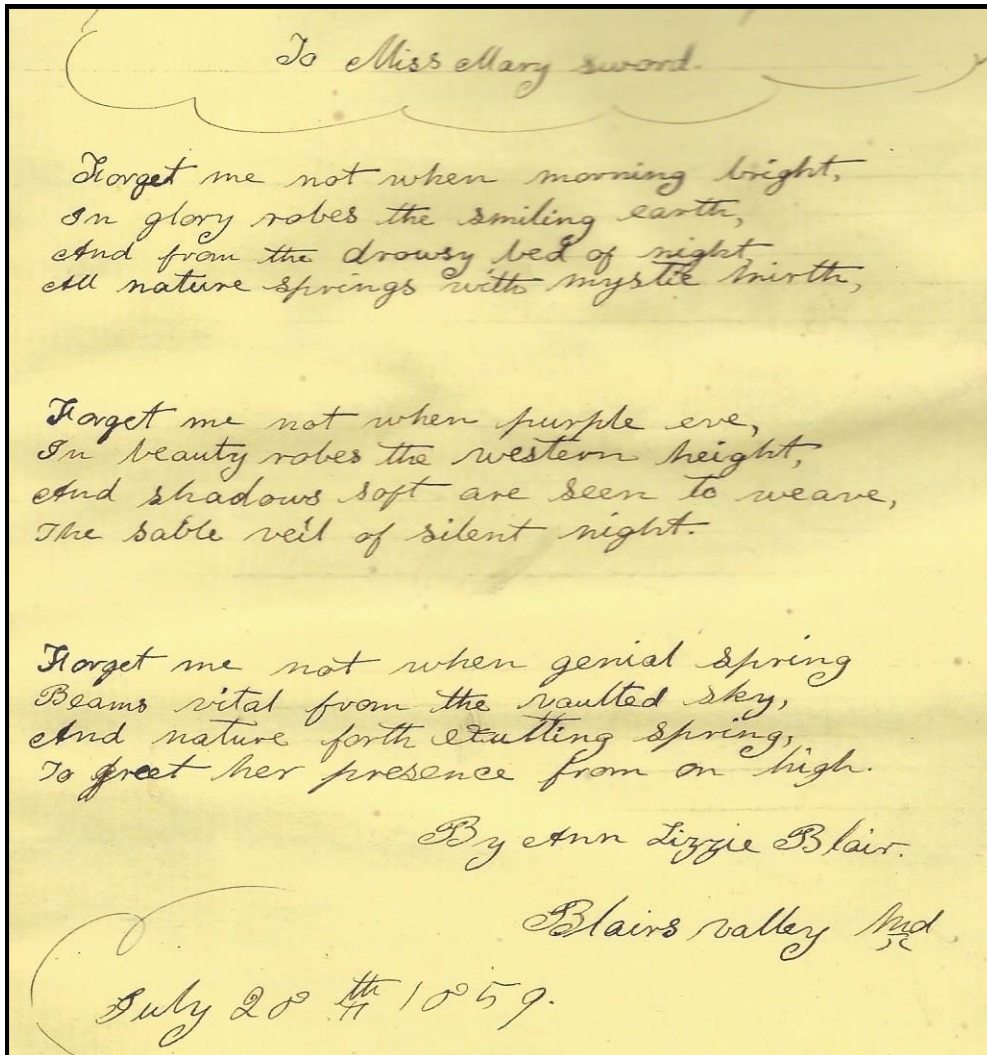 To Miss Mary sword.
Forget me not when morning bright,
In glory robes the smiling earth,
And from the drowsy bed of night,
All nature springs with mystic mirth,
Forget me not when purple eve,
In beauty robes the western height,
And shadows soft are seen to weave,
The sable veil of silent night.
Forget me not when genial spring
Beams vital from the vaulted sky,
And nature forth exulting spring,
To greet her presence from on high.
By Ann Lizzie Blair.
Blairs valley Md
July 28th 1859.